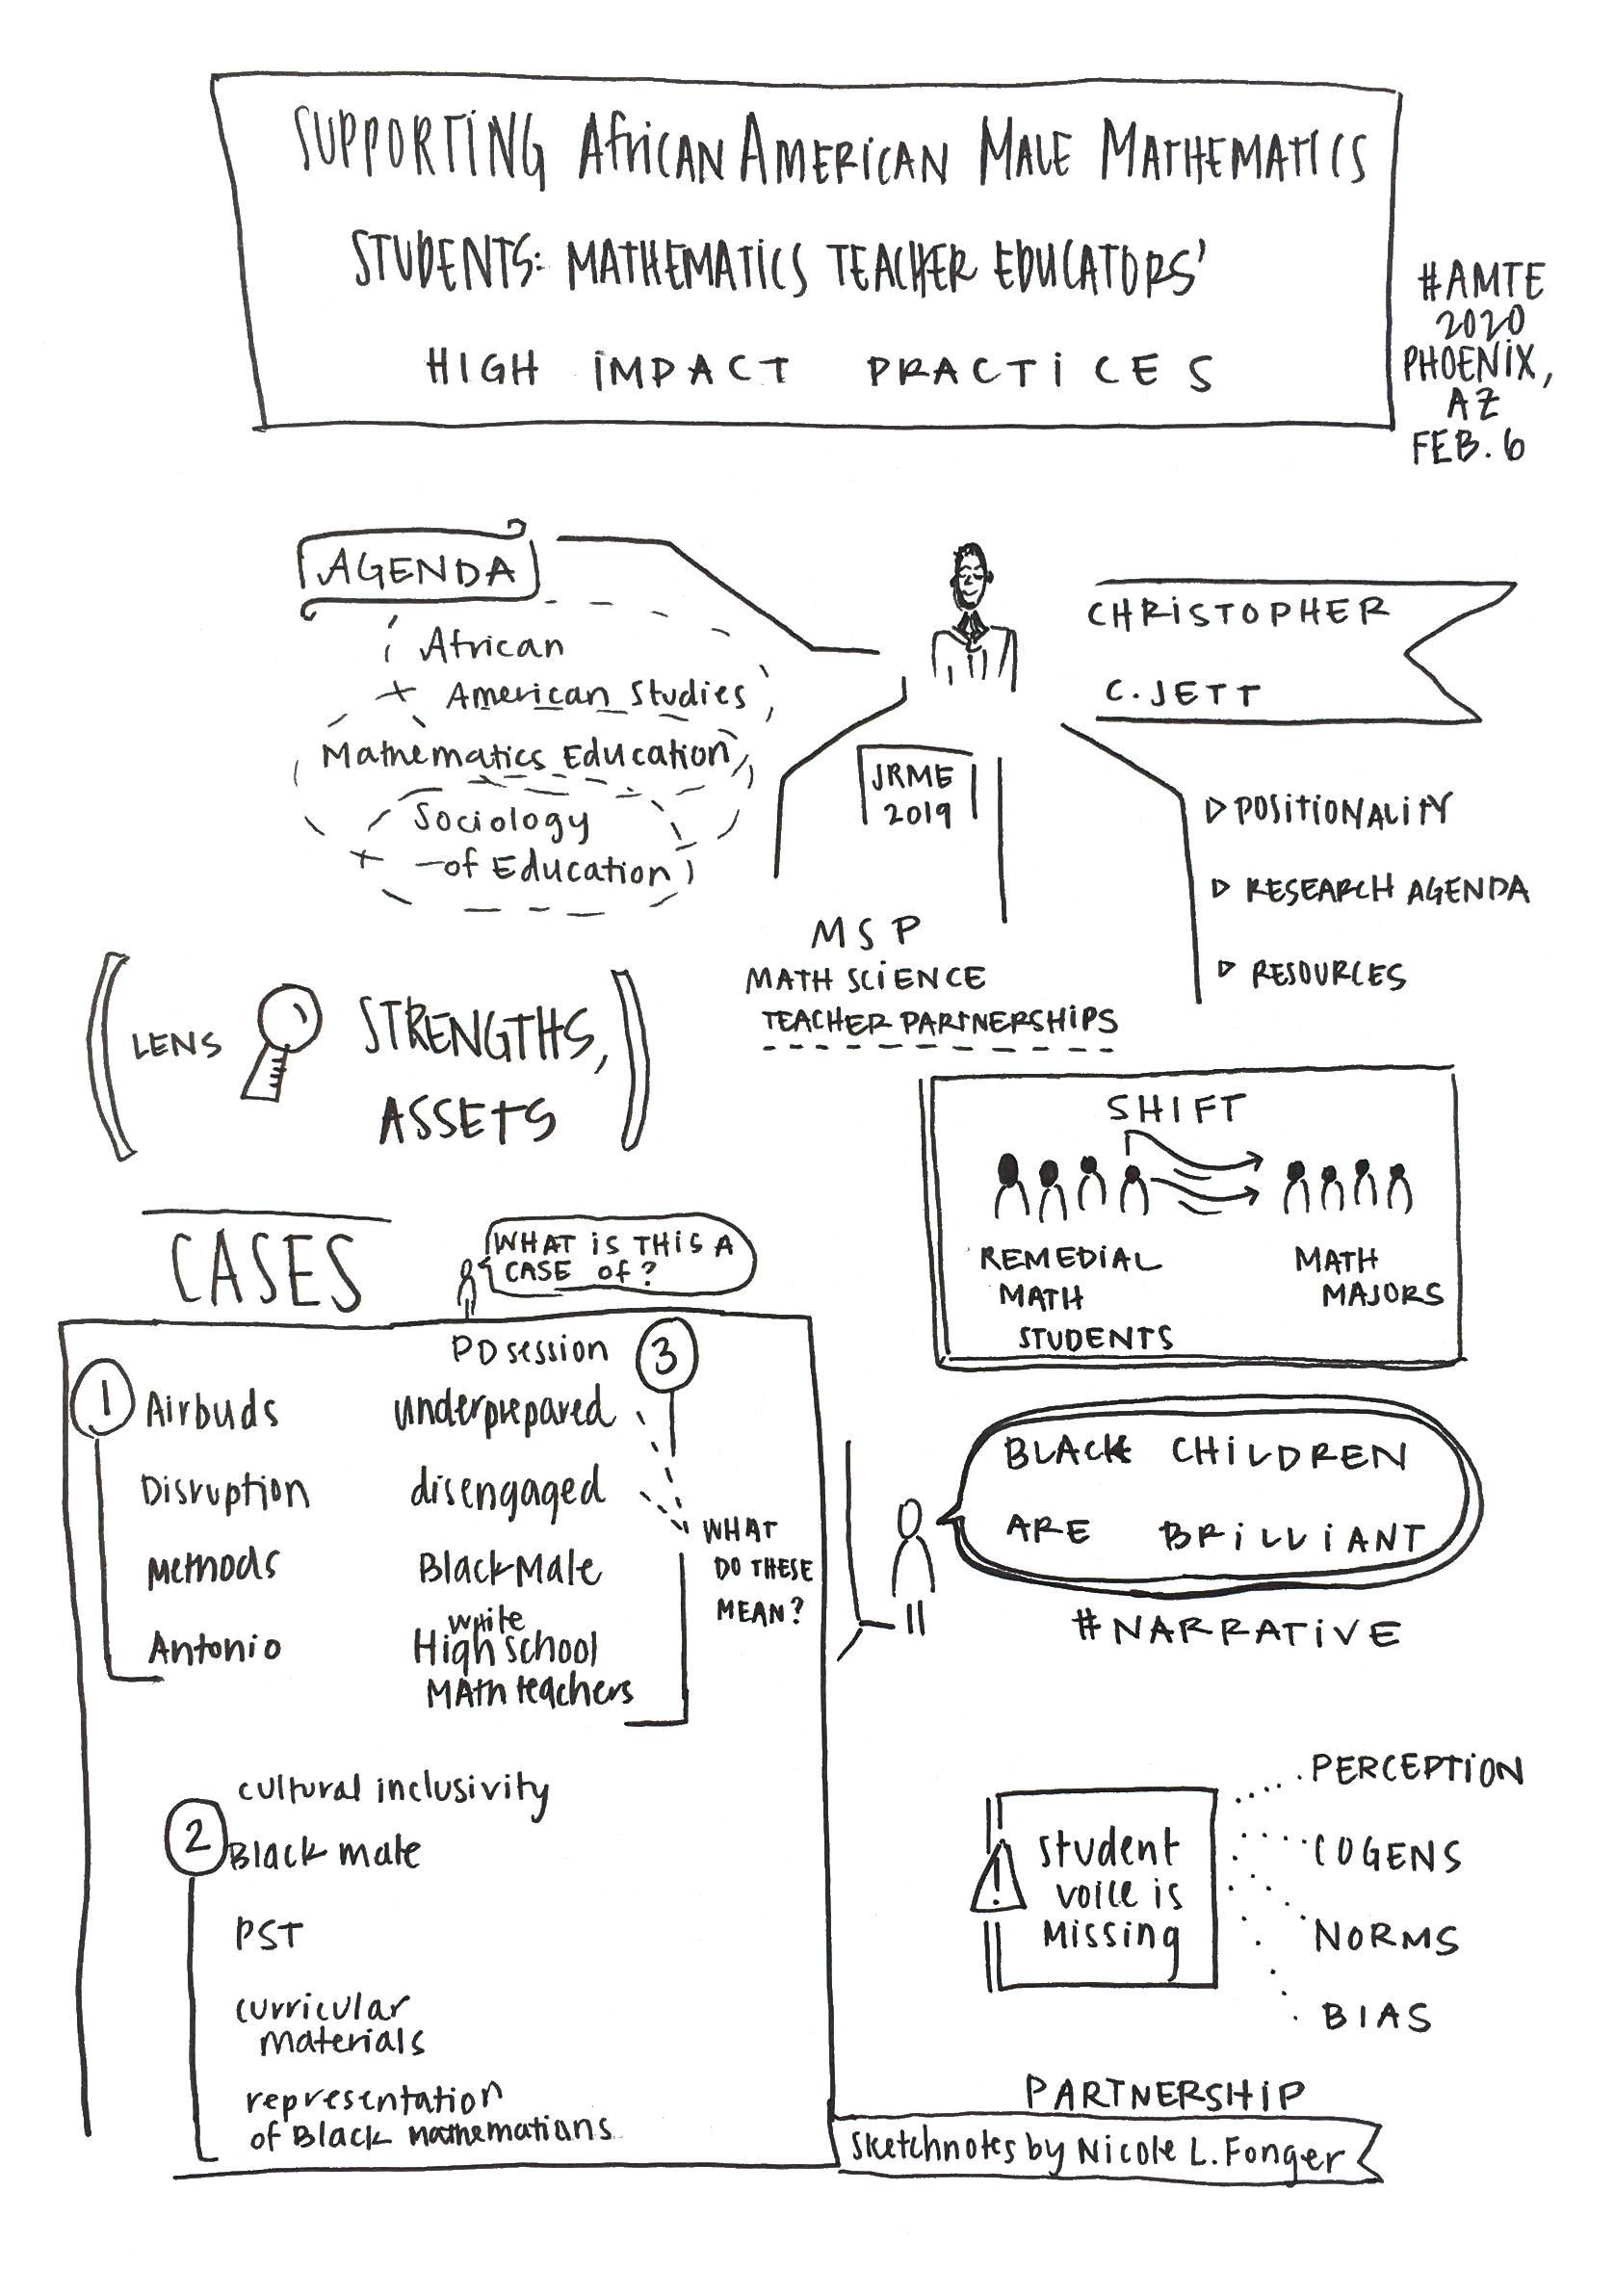 SUPPORTING AFRICAN AMERICAN MALE MATHEMATICS
STUDENTS: MATHEMATICS TEACHER EDUCATORS'
HIGH IMPACT PRACTICES
#AMTE
2020
PHOENIX,
AZ
FEB. 6
AGENDA
African
American Studies
Mathematics Education
Sociology
of Education
CHRISTOPHER
C. JETT
JRME
2019
MSP
MATH SCIENCE
TEACHER PARTNERSHIPS
▷ POSITIONALITY
▷ RESEARCH AGENDA
▷ RESOURCES
LENS
STRENGTHS,
ASSETS
SHIFT
REMEDIAL
MATH
STUDENTS
MATH
MAJORS
CASES
WHAT IS THIS A
CASE OF?
1
Airbuds
Disruption
Methods
Antonio
PD session
3
underprepared
disengaged
Black Male
white
High school
MAth teachers
WHAT
DO THESE
MEAN?
2
cultural inclusivity
Black male
PST
curricular
materials
representation
of Black mathematians
BLACK CHILDREN
ARE BRILLIANT
#NARRATIVE
!
student
voice is
Missing
PERCEPTION
COGENS
NORMS
BIAS
PARTNERSHIP
sketchnotes by Nicole L. Fonger